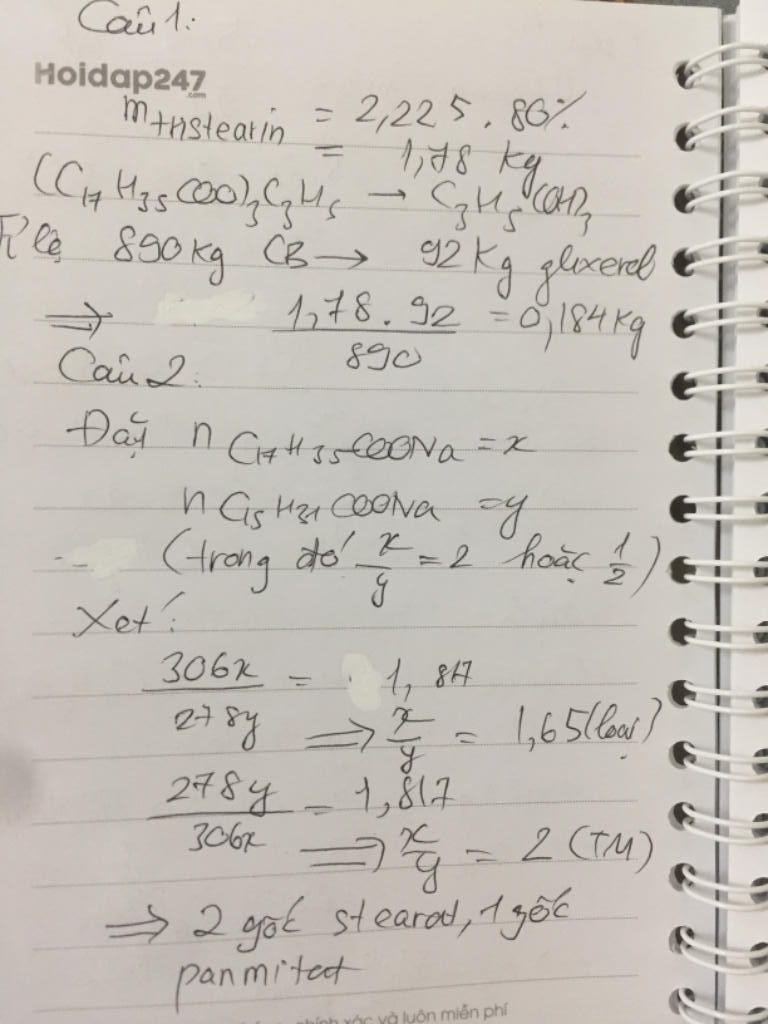 Câu 1:
Hoidap247
.com
m tristearin = 2,225 . 80%
= 1,78 kg
(C17H35COO)3C3H5 → C3H5(OH)3
Tỉ lệ 890kg CB → 92 kg glixerol
⇒ 1,78 . 92 / 890 = 0,184 kg
Câu 2:
Đặt n C17H35COONa = x
n C15H31COONa = y
(trong đó x/y = 2 hoặc 1/2)
Xét:
306x / 278y = 1,817
⇒ x/y = 1,65 (loại)
278y / 306x = 1,817
⇒ x/y = 2 (TM)
⇒ 2 gốc stearat, 1 gốc
panmitat
chính xác và luôn miễn phí